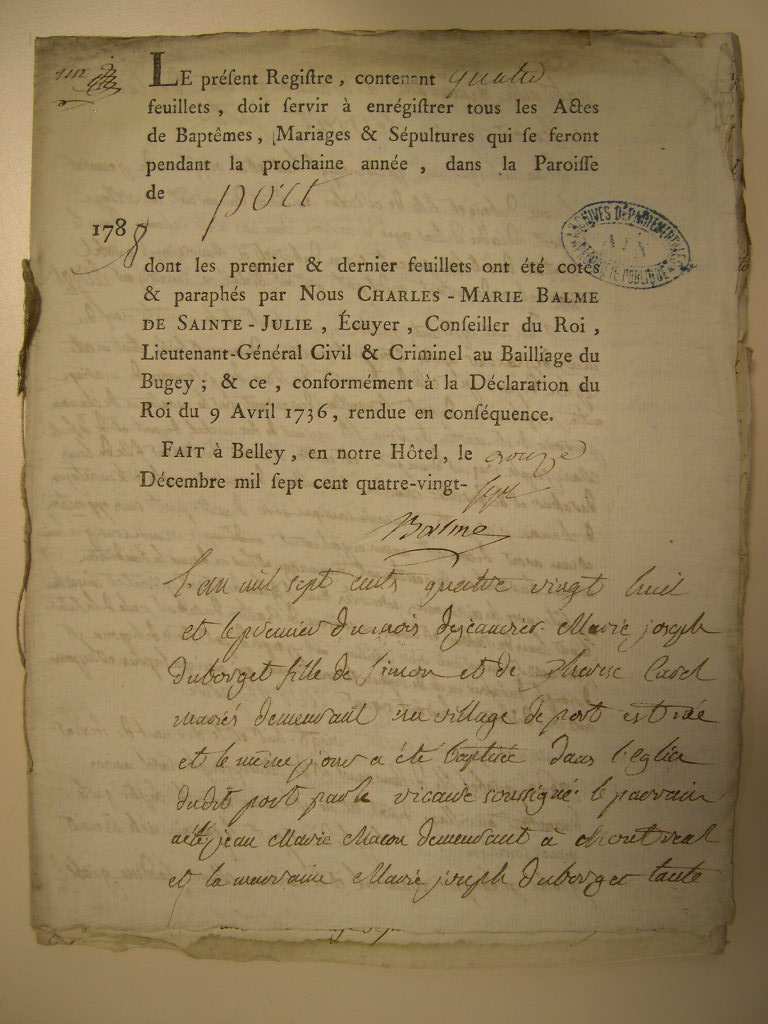 LE préſent Regiſtre, contenant quatre
feuillets, doit ſervir à enrégiſtrer tous les Actes
de Baptêmes, Mariages & Sépultures qui ſe feront
pendant la prochaine année, dans la Paroiſſe
de port
1788
ARCHIVES DÉPARTEMENTALES
AIN
dont les premier & dernier feuillets ont été cotés
& paraphés par Nous CHARLES-MARIE BALME
DE SAINTE-JULIE, Écuyer, Conſeiller du Roi,
Lieutenant-Général Civil & Criminel au Bailliage du
Bugey; & ce, conformément à la Déclaration du
Roi du 9 Avril 1736, rendue en conſéquence.
FAIT à Belley, en notre Hôtel, le
Décembre mil ſept cent quatre-vingt-sept
Balme
L'an mil sept cents quatre vingt huit
et le premier du mois de jeanvier Marie joseph
duborget fille de Simon et de Therese
mariés demeurant au village de port est née
et le même jour a été baptisée dans l'eglise
dudit port par le vicaire soussigné le parrain
a été jean Marie Macon demeurant à
et la marraine Marie joseph duborget tante